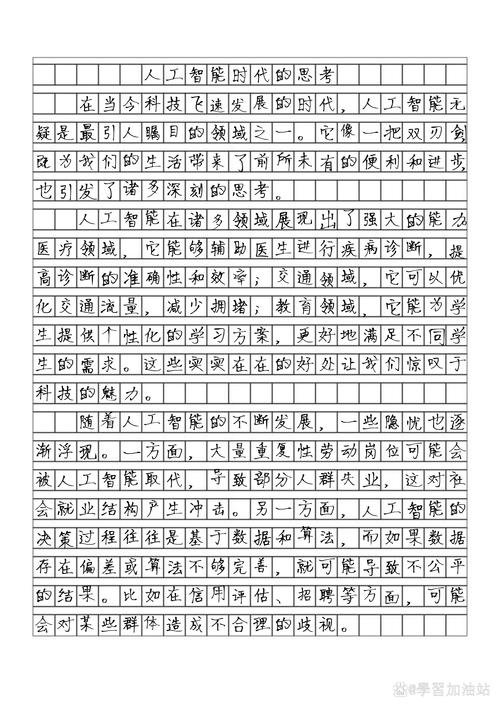 人工智能时代的思考
在当今科技飞速发展的时代，人工智能无
疑是最引人瞩目的领域之一。它像一把双刃剑
既为我们的生活带来了前所未有的便利和进步
也引发了诸多深刻的思考。
人工智能在诸多领域展现出了强大的能力
医疗领域，它能够辅助医生进行疾病诊断，提
高诊断的准确性和效率；交通领域，它可以优
化交通流量，减少拥堵；教育领域，它能为学
生提供个性化的学习方案，更好地满足不同学
生的需求。这些实实在在的好处让我们惊叹于
科技的魅力。
随着人工智能的不断发展，一些隐忧也逐
渐浮现。一方面，大量重复性劳动岗位可能会
被人工智能取代，导致部分人群失业，这对社
会就业结构产生冲击。另一方面，人工智能的
决策过程往往是基于数据和算法，而如果数据
存在偏差或算法不够完善，就可能导致不公平
的结果。比如在信用评估、招聘等方面，可能
会对某些群体造成不合理的歧视。
@學習加油站